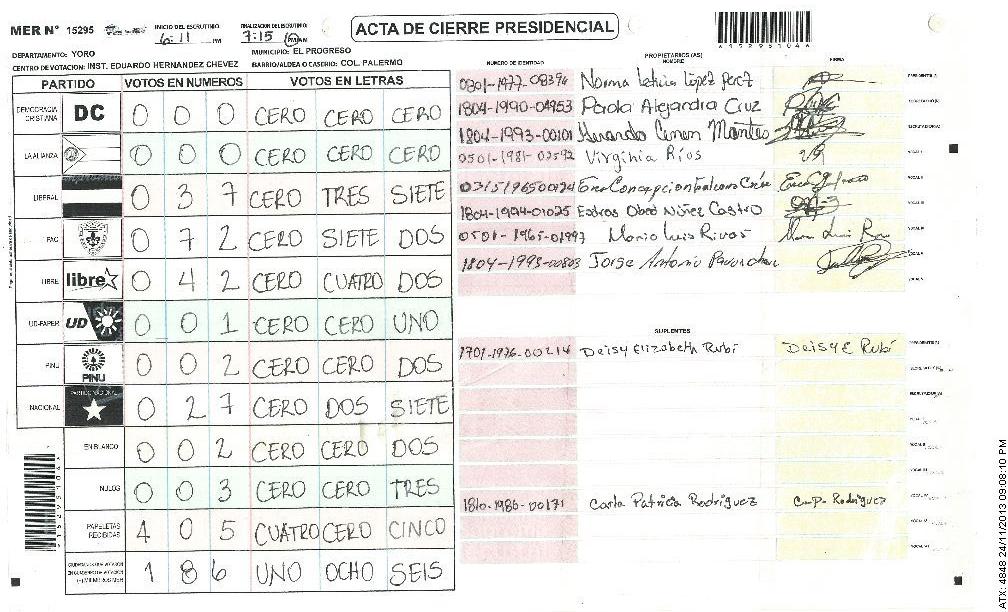 MER Nº 15295 INICIO DEL ESCRUTINIO: 6:11 PM FINALIZACION DEL ESCRUTINIO: 7:15 PM AM
ACTA DE CIERRE PRESIDENCIAL
DEPARTAMENTO: YORO MUNICIPIO: EL PROGRESO
CENTRO DE VOTACION: INST. EDUARDO HERNANDEZ CHEVEZ BARRIO/ALDEA O CASERIO: COL. PALERMO
PARTIDO VOTOS EN NUMEROS VOTOS EN LETRAS
DEMOCRACIA CRISTIANA DC 0 0 0 CERO CERO CERO
LA ALIANZA 0 0 0 CERO CERO CERO
LIBERAL 0 3 7 CERO TRES SIETE
PAC 0 7 2 CERO SIETE DOS
LIBRE libre 0 4 2 CERO CUATRO DOS
UD-FAPER UD 0 0 1 CERO CERO UNO
PINU PINU 0 0 2 CERO CERO DOS
NACIONAL 0 2 7 CERO DOS SIETE
EN BLANCO 0 0 2 CERO CERO DOS
NULOS 0 0 3 CERO CERO TRES
PAPELETAS RECIBIDAS 4 0 5 CUATRO CERO CINCO
1 8 6 UNO OCHO SEIS
PROPIETARIOS (AS)
NUMERO DE IDENTIDAD NOMBRE FIRMA
0801-1977-08394 Norma Leticia López
1804-1990-04953 Paola Alejandra Cruz
1804-1993-00101
0501-1981-03592 Virginia Ríos
1804-1994-01025 Esdras Obed Núñez Castro
0501-1965-01997 Mario Luis Rivas
1804-1993-00803 Jorge Antonio
SUPLENTES
1701-1976-00214 Deisy Elizabeth Rubí Deisy E Rubí
1810-1986-00171 Carla Patricia Rodriguez Rodriguez
ATX: 4848 24/11/2013 09:08:10 PM